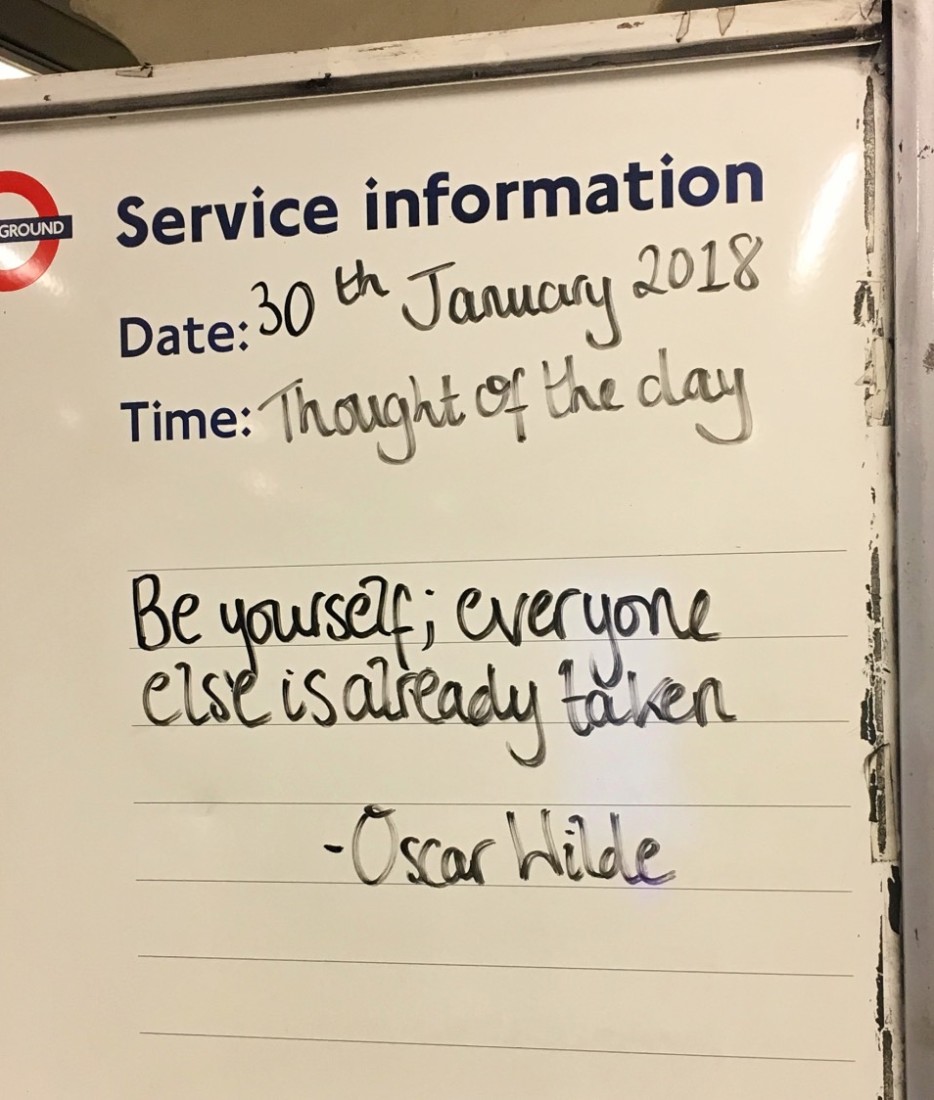 GROUND
Service information
Date: 30th January 2018
Time: Thought of the day
Be yourself; everyone
else is already taken
- Oscar Wilde